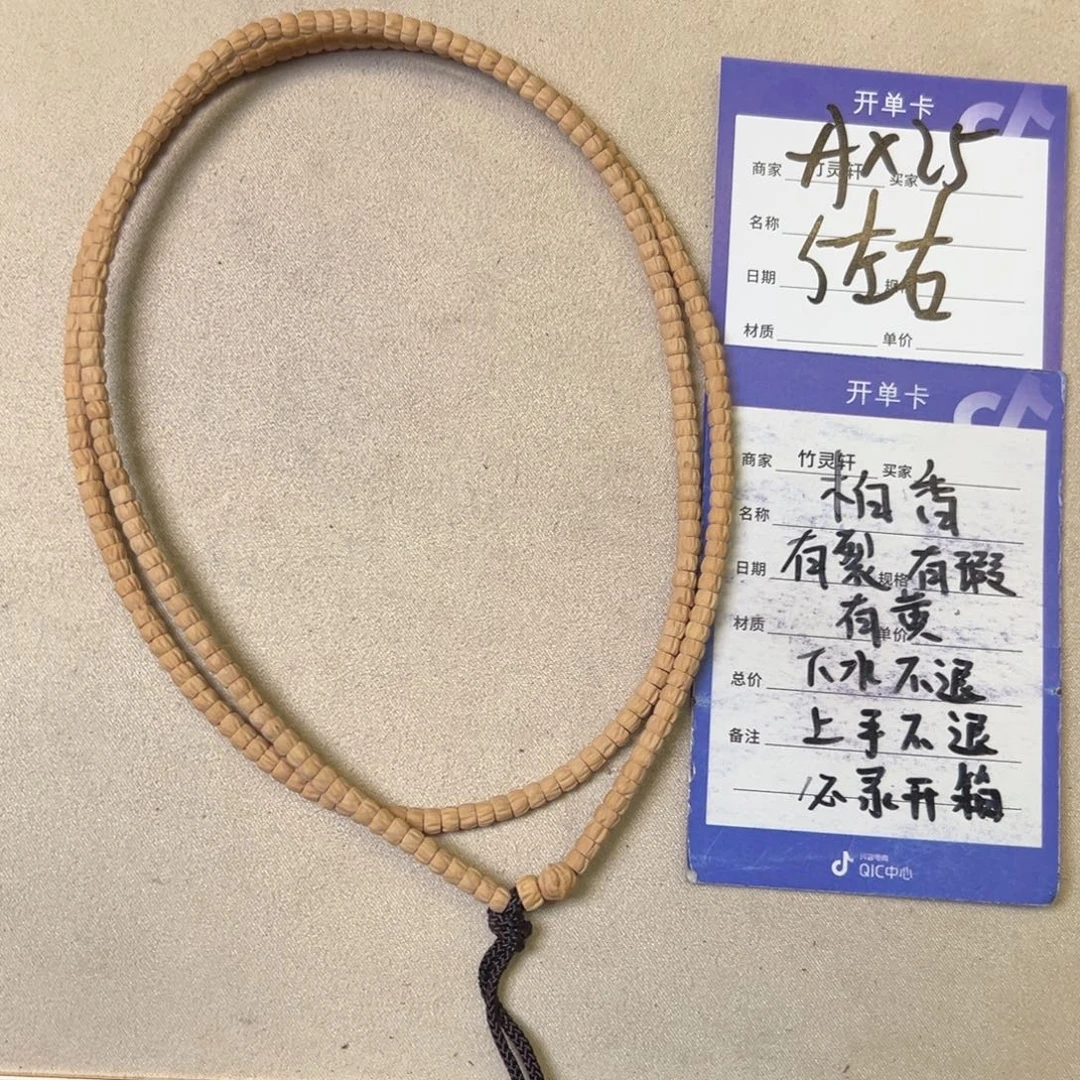 开单卡
A×25
商家 竹灵轩 买家
名称
5左右
日期 规格
材质 单价
开单卡
商家 竹灵轩 买家
柏香
名称
有裂 有瑕
日期 规格
有黄
材质 单价
下水不退
总价
上手不退
备注
必录开箱
抖音电商
QIC中心